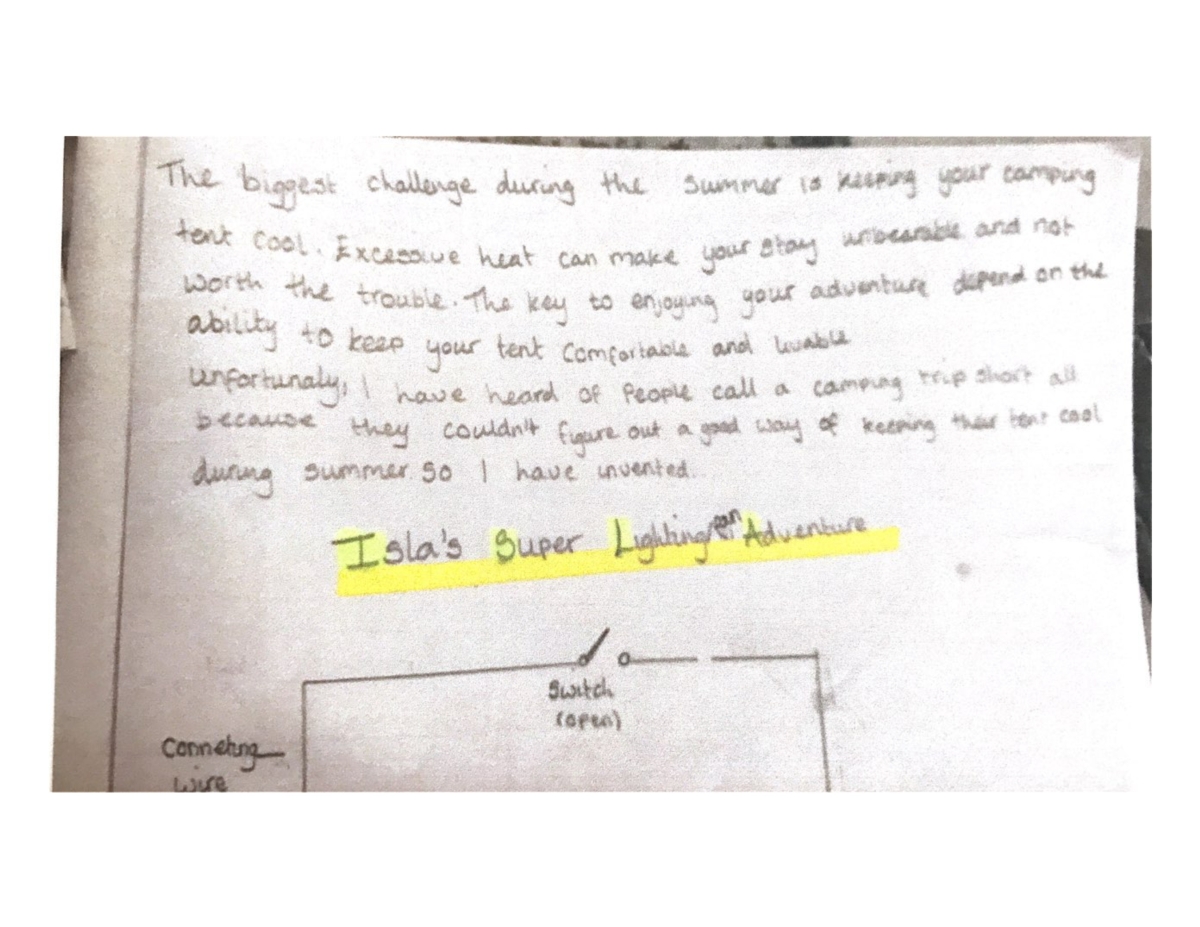 The biggest challenge during the summer is keeping your camping
tent cool. Excessive heat can make your stay unbearable and not
worth the trouble. The key to enjoying your adventure depend on the
ability to keep your tent comfortable and livable
unfortunaly, I have heard of people call a camping trip short all
because they couldn't figure out a good way of keeping their tent cool
during summer. So I have invented..
Isla's Super Lighting Adventure
Switch
(open)
Conneting
wire